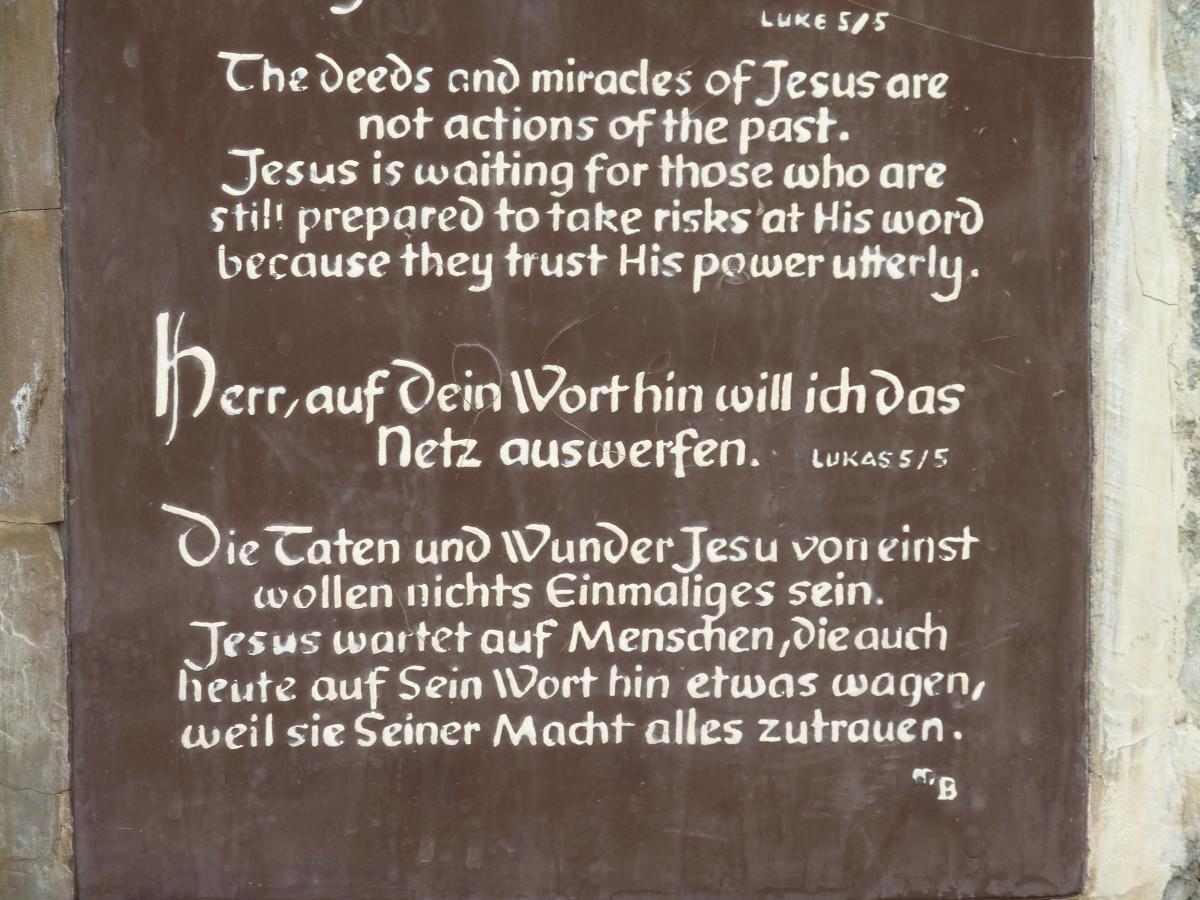 LUKE 5/5
The deeds and miracles of Jesus are
not actions of the past.
Jesus is waiting for those who are
still prepared to take risks at His word
because they trust His power utterly.
Herr, auf Dein Wort hin will ich das
Netz auswerfen. LUKAS 5/5
Die Taten und Wunder Jesu von einst
wollen nichts Einmaliges sein.
Jesus wartet auf Menschen, die auch
heute auf Sein Wort hin etwas wagen,
weil sie Seiner Macht alles zutrauen.